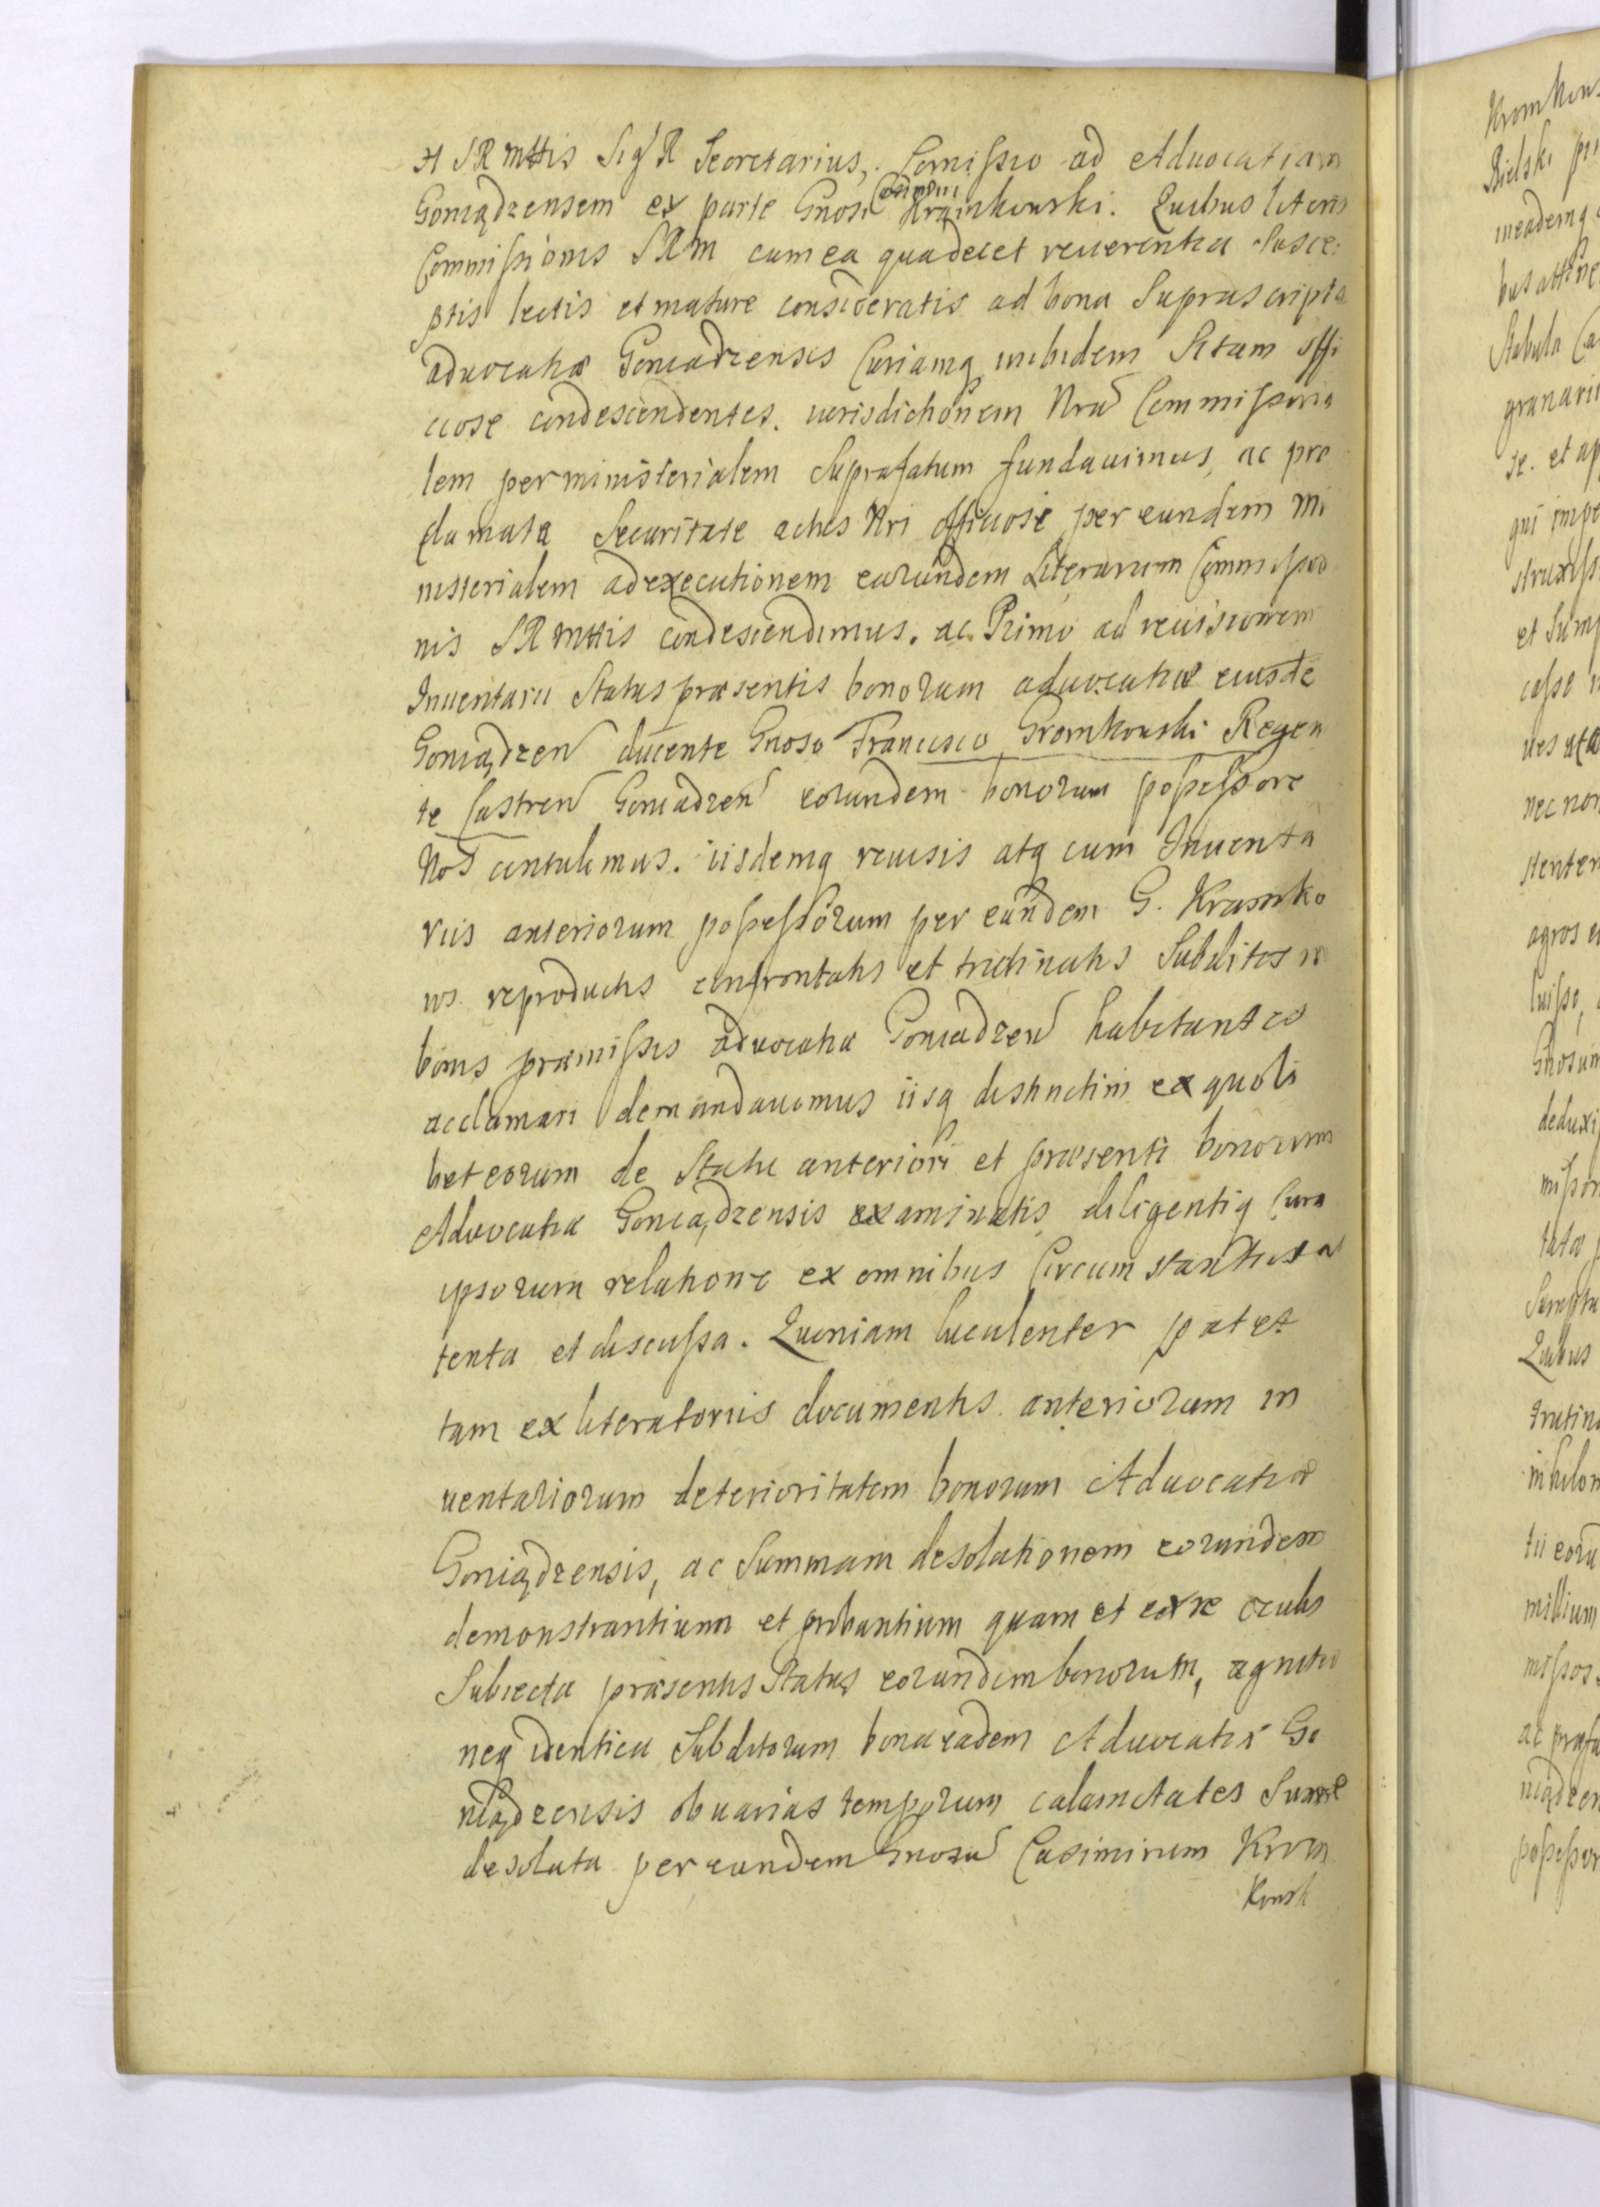 SRMttis Sigl R Secretarius, Comissio ad Advocatiam
Goniądzensem ex parte Gnosi Casimiri Kramkowski. Quibus literis
Commissionis SRM cum ea qua decet reverentia susce
ptis lectis et mature consideratis ad bona Suprascripta
advocatiæ Goniadzensis Curiamq inibidem Sitam offi
ciose condescendentes. iurisdictionem Nram Commissoria
lem per ministerialem Suprafatum fundavimus, ac pro
clamata Securitate actus Nri officiose per eundem Mi
nisterialem ad executionem earundem Literarum Commissio
nis SRMttis condescendimus. ac Primo ad revisionem
Inventarii Status præsentis bonorum advocatiæ eiusde
Goniądzen ducente Gnoso Francisco Gromkowski Regen
te Castren Goniadzen eorundem bonorum possessore
Nos contulimus. iisdemq revisis atq cum Inventa
riis anteriorum possessorum per eundem G. Kramko
ws reproductis confrontatis et trutinatis Subditos in
bonis præmissis advocatiæ Goniadzen habitantes
acclamari demandavimus iisq distinctim ex quoli
bet eorum de Statu anteriori et præsenti bonorum
Advocatiæ Goniądzensis examinatis diligentiq Cura
ipsorum relatione ex omnibus Circumstantiis at
tenta et discussa. Quoniam luculenter patet
tam ex literatoriis documentis anteriorum in
ventariorum deterioritatem bonorum Advocatiæ
Goniądzensis, ac Summam desolationem eorundem
demonstrantium et probantium quam et ex re oculis
Subiecta præsentis Status eorundem bonorum, agnitio
neq identica Subditorum bona eadem Advocatiæ Go
niądzensis ob varias temporum calamitates Sume
desolata per eundem Gnosu Casimirum Krom
Kowsk